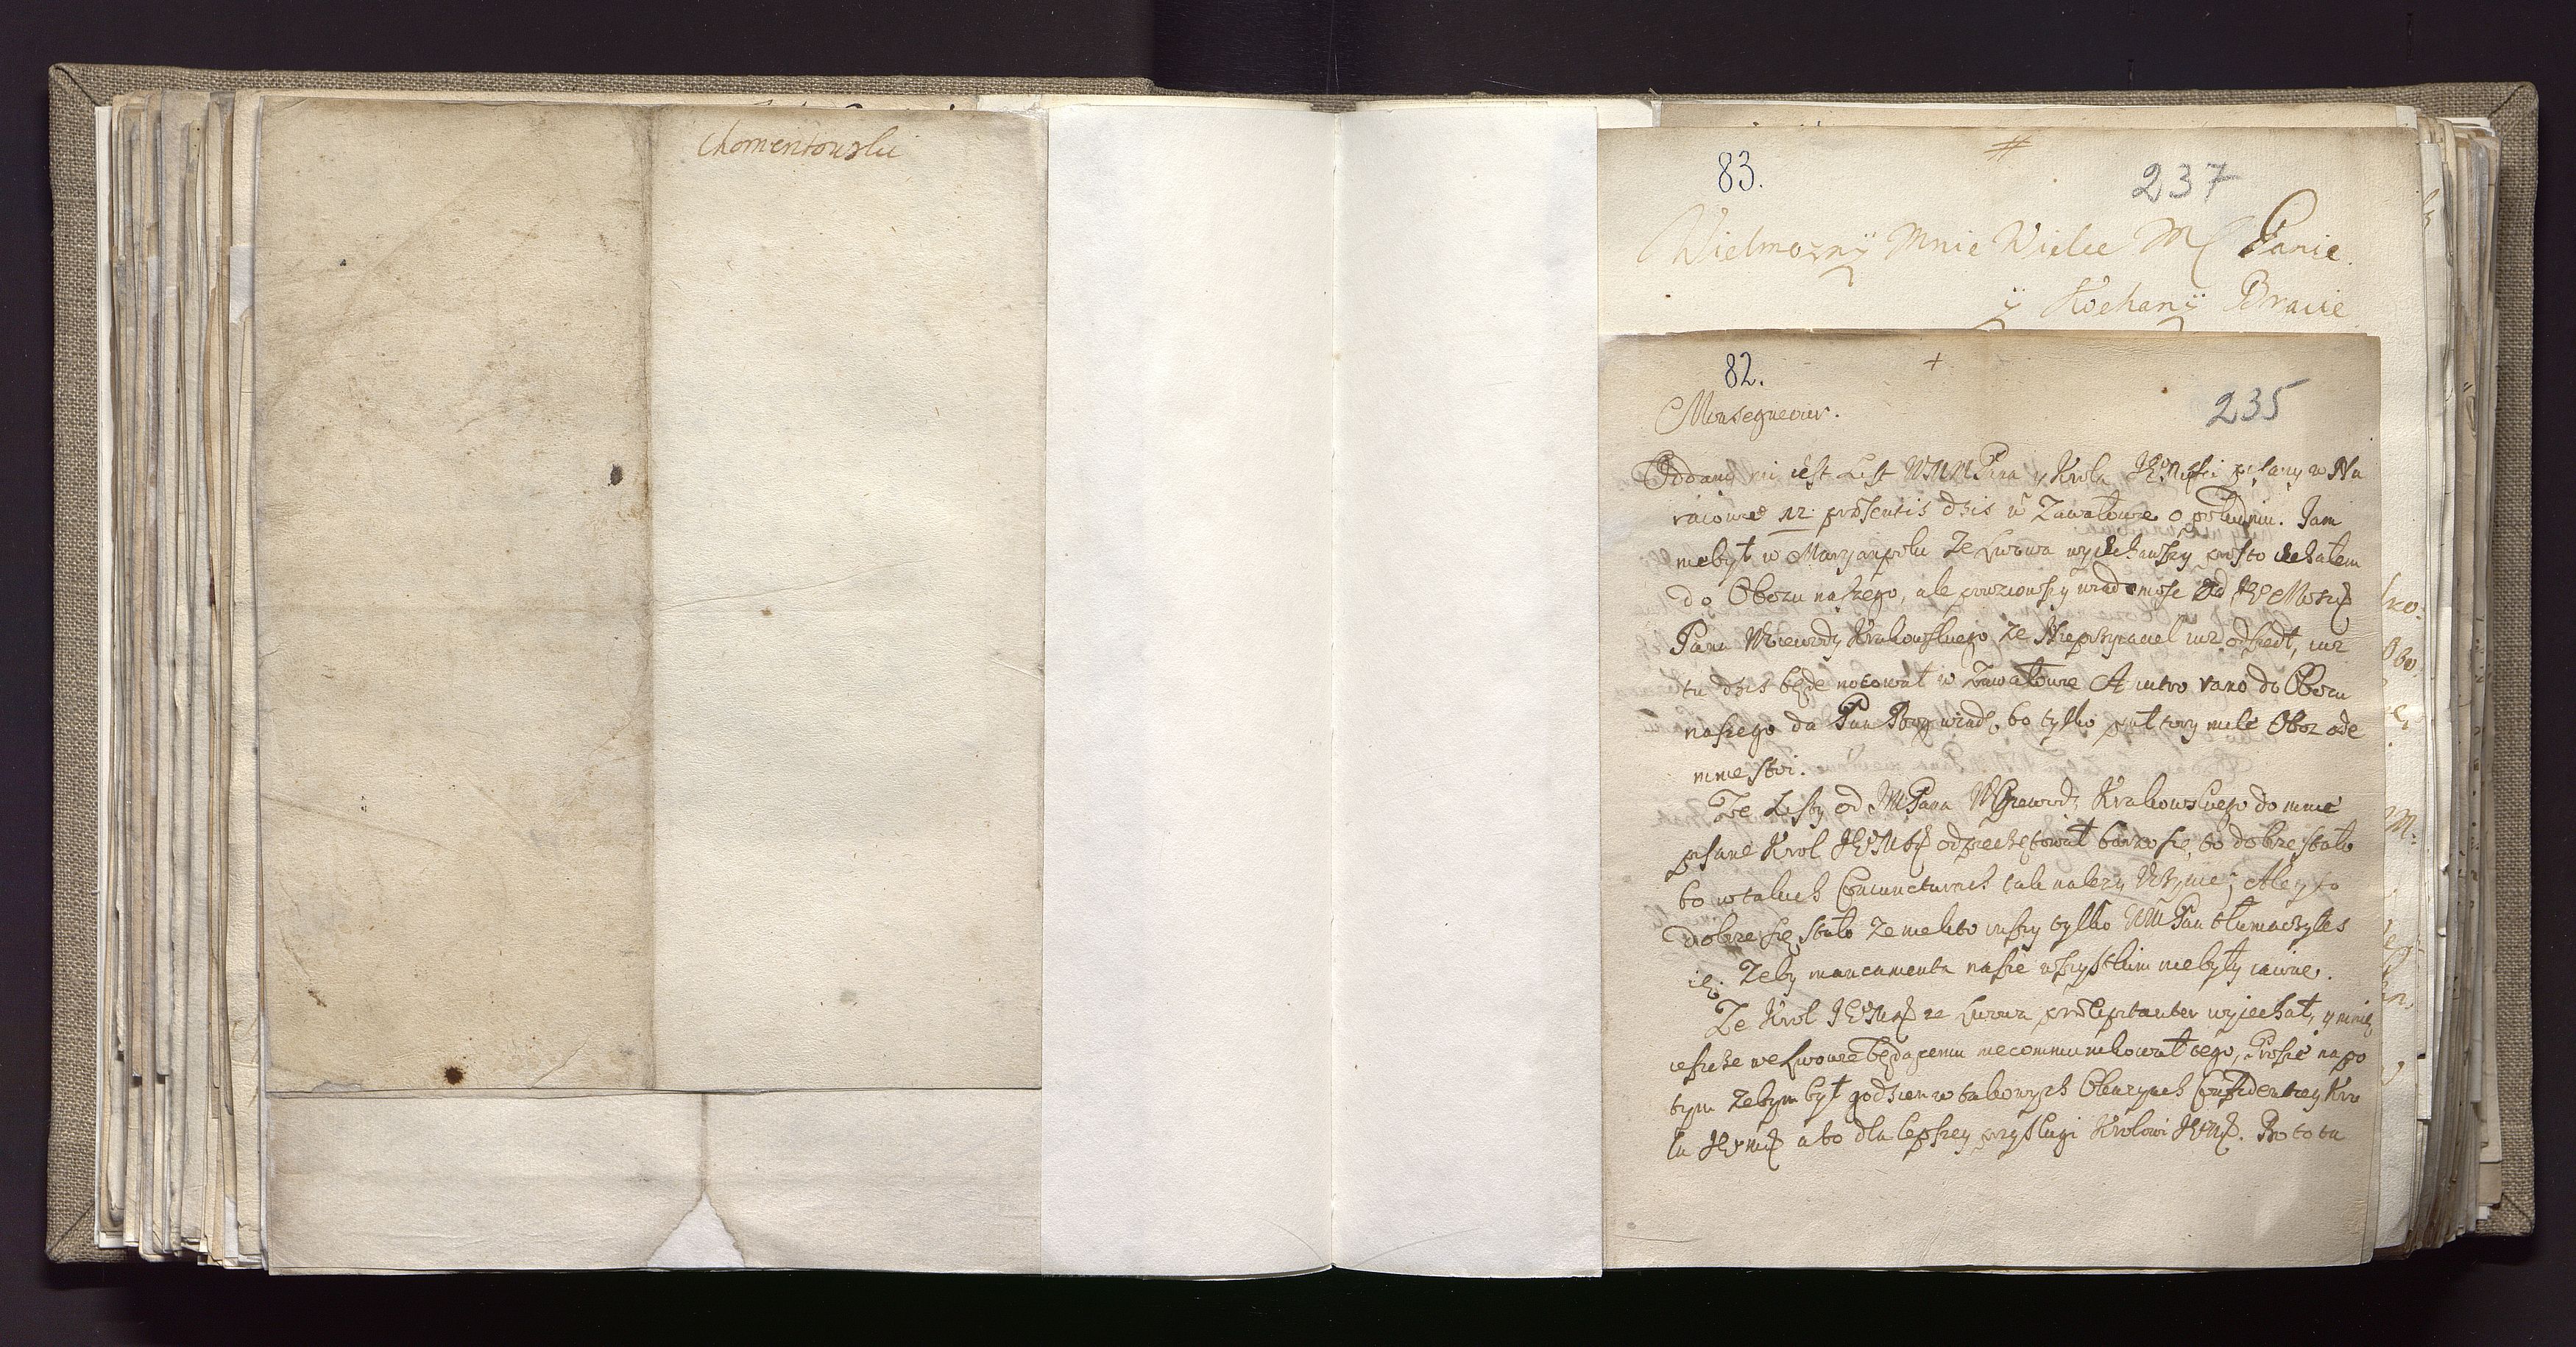 Chomentowski
83.
#
237
Wielmozny Mnie Wielce M Panie
y Kochany Bracie
82.
+
235
Monsegneour.
Oddany mi iest List WMMPana y Krola JEMosci pisany w Na
raiowie 12 prosentis dzis w Zawalowie o poludniu. Jam
niebył w Maryanpolu ze Lwowa wyiechawszy prosto iechałem
do Obozu naszego, ale powziowszy wiadomosc od JE Mosci
Pana Woiewody Krakowskiego ze Nieprzyiaciel iuz odszedł, iuz
tu dzis będe nocował w Zawałowie A iutro rano do Obozu
naszego da Pan Bog wiade, bo tylko pułtory mile Oboz ode
mnie stoi.
Ze Listy od JMPana Woiewody Krakowskiego do mnie
pisane Krol JEMść odpieczętował barzo się to dobrze stało
bo w takich Coniuncturach tak nalezy Uczynic, Ale y to
dobrze się stało ze niekto inszy tylko WMPan tłumaczyłes
ie. Zeby mancamenta nasze wszystkim niebyły iawne.
Ze Krol JEMść ze Lwowa wyiechał, y mnie
ieszcze we Lwowie będącemu niecommunikował tego, Prosze napo
tym zebym był godzien w takowych Okazyach Confidentiey Kro
la JEMści abo dla lepszey przysługi Krolowi JEMści. Bo to tu